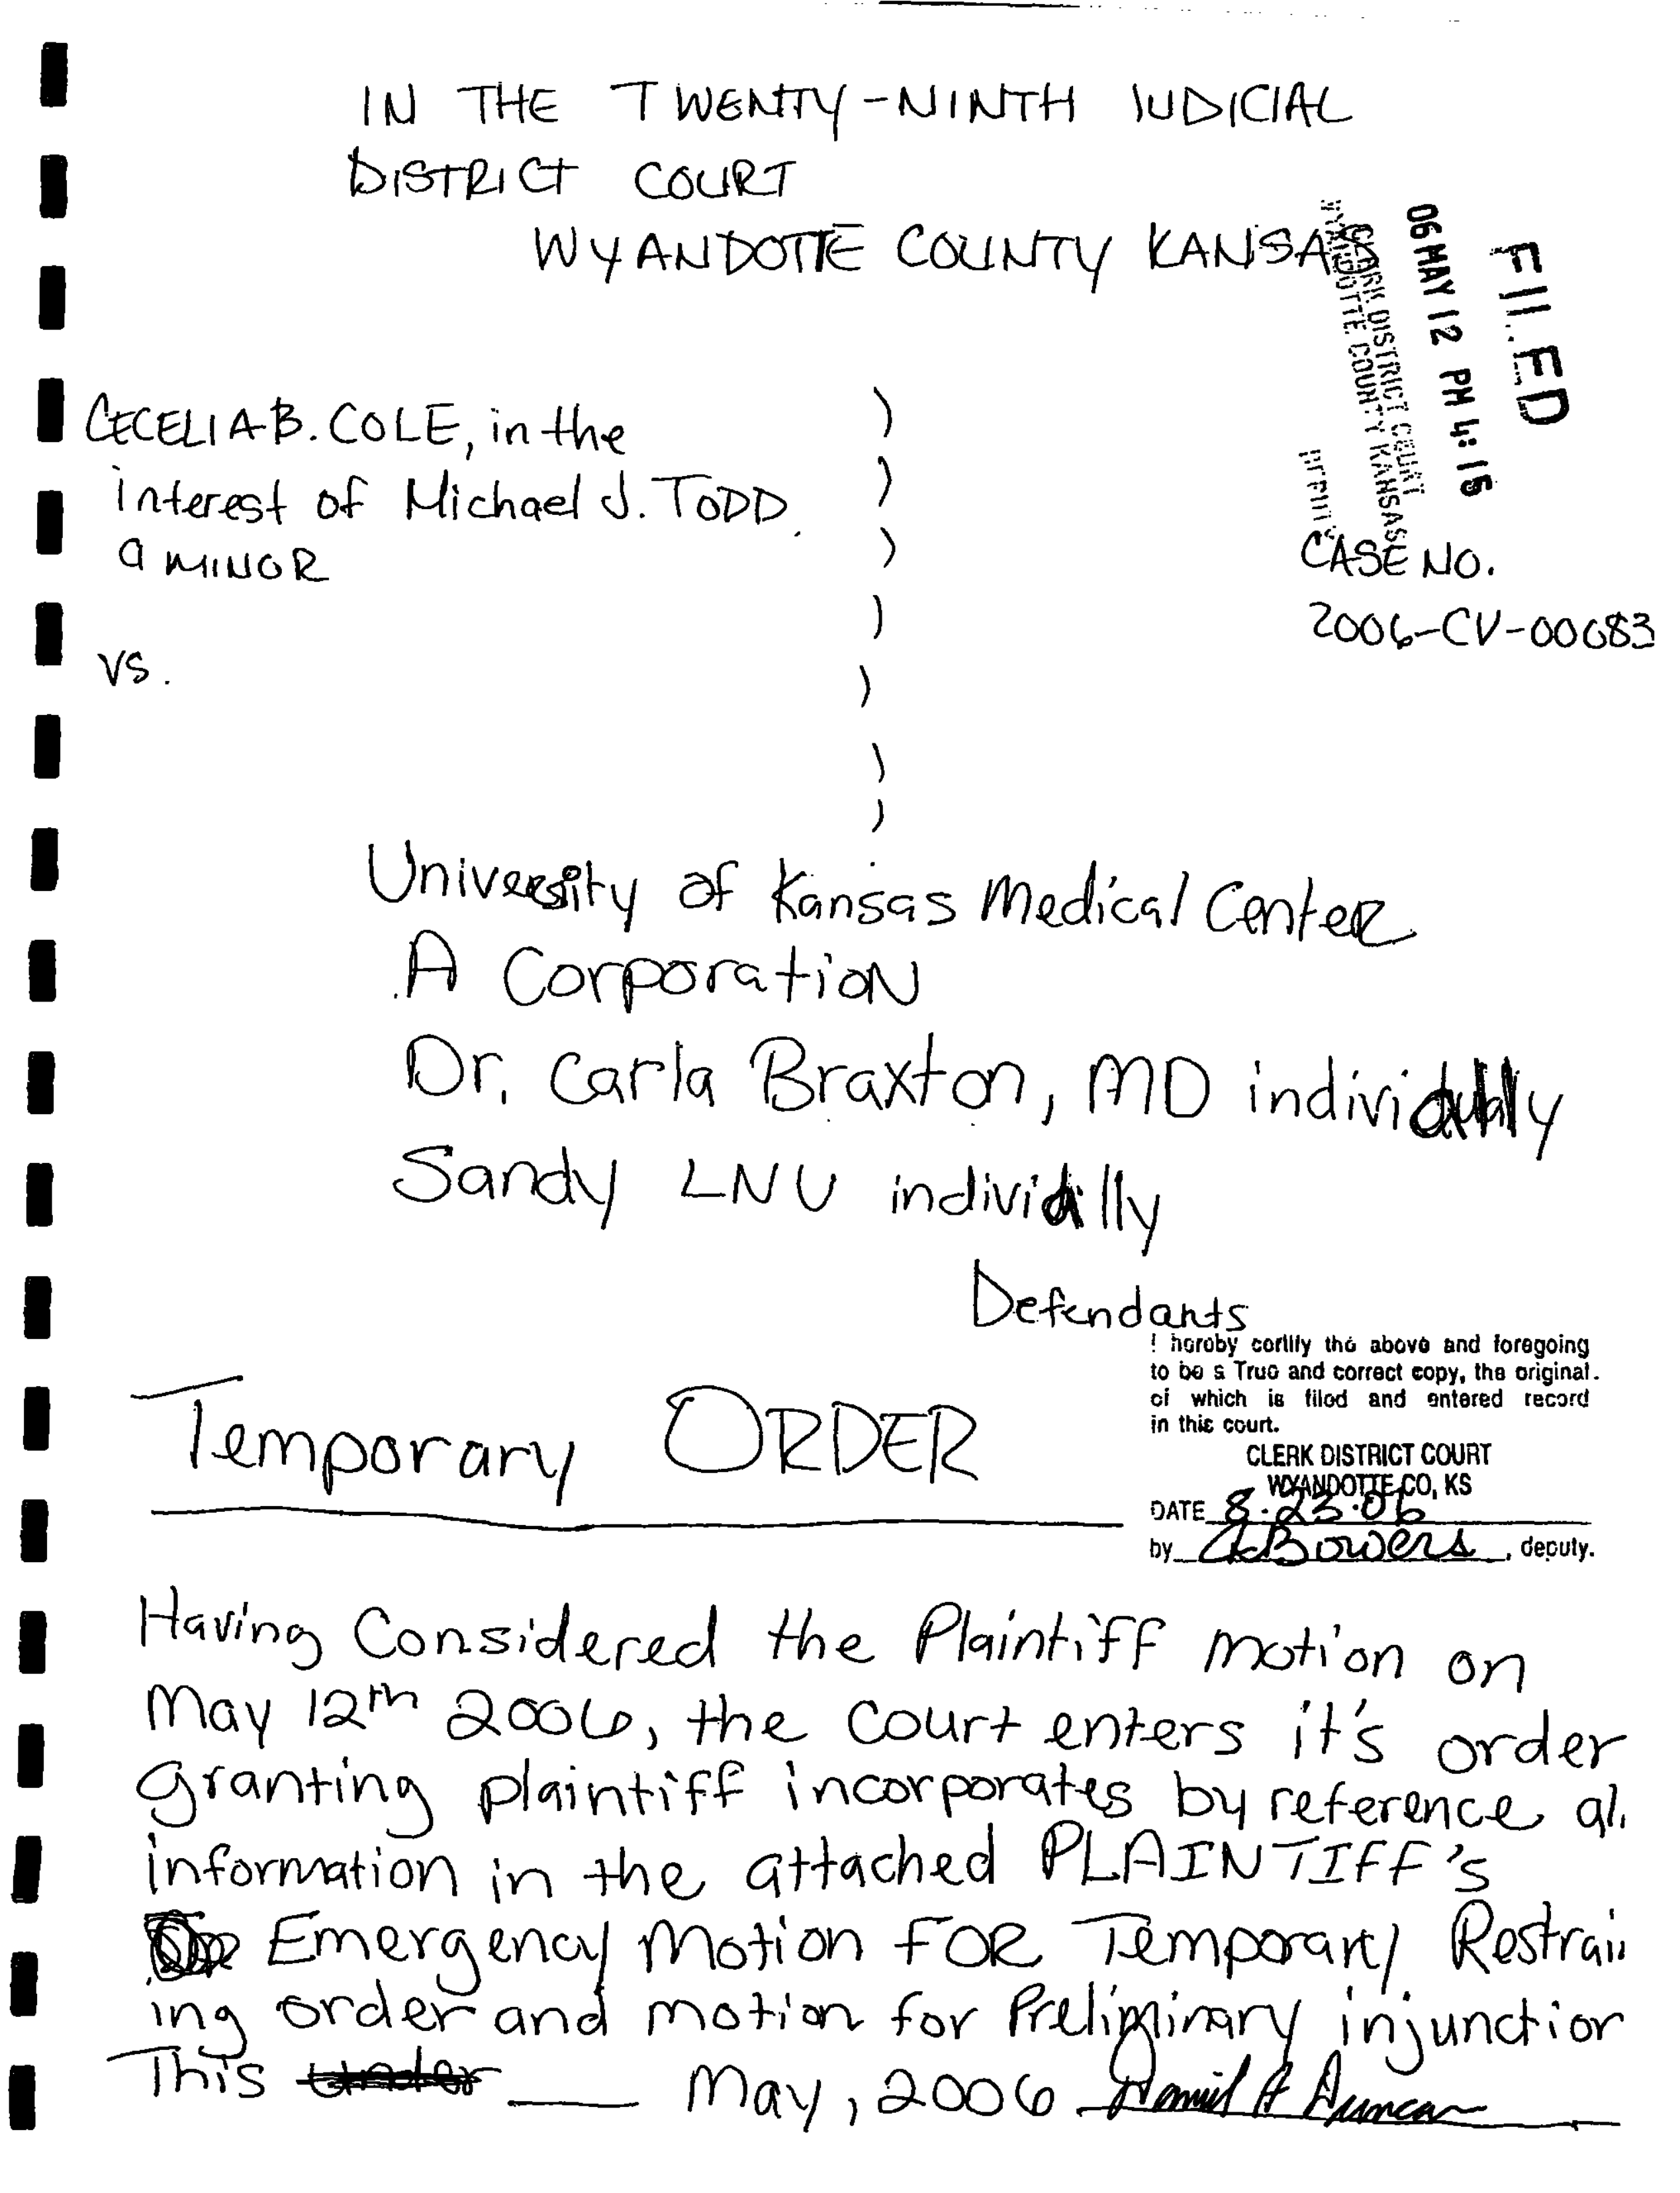 IN THE TWENTY-NINTH JUDICIAL
DISTRICT COURT
WYANDOTTE COUNTY KANSAS
FILED
06 MAY 12 PM 4:15
CLERK DISTRICT COURT
WYANDOTTE COUNTY KANSAS
CECELIA B. COLE, in the
interest of Michael J. TODD
a MINOR
)
)
)
)
)
)
)
CASE NO.
2006-CV-00683
vs.
University of Kansas Medical Center
A Corporation
Dr. Carla Braxton, MD individually
Sandy LNU individilly
Defendants
I hereby certify the above and foregoing
to be a True and correct copy, the original
of which is filed and entered record
in this court.
CLERK DISTRICT COURT
WYANDOTTE CO, KS
DATE 8.23.06
by Bowers, deputy.
Temporary ORDER
Having Considered the Plaintiff motion on
May 12th 2006, the Court enters it's order
granting plaintiff incorporates by reference al
information in the attached PLAINTIFF's
Emergency Motion FOR Temporary Restrain
ing order and motion for Preliminary injunction
This ____ May, 2006 Daniel A Duncan